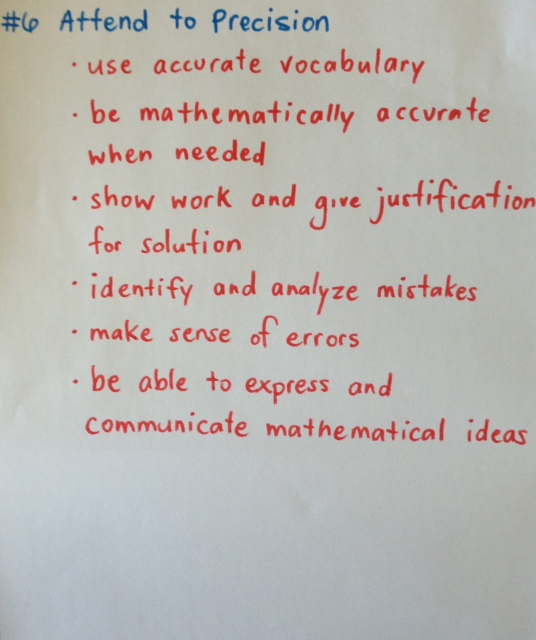 #6 Attend to Precision
· use accurate vocabulary
· be mathematically accurate
when needed
· show work and give justification
for solution
· identify and analyze mistakes
· make sense of errors
· be able to express and
communicate mathematical ideas